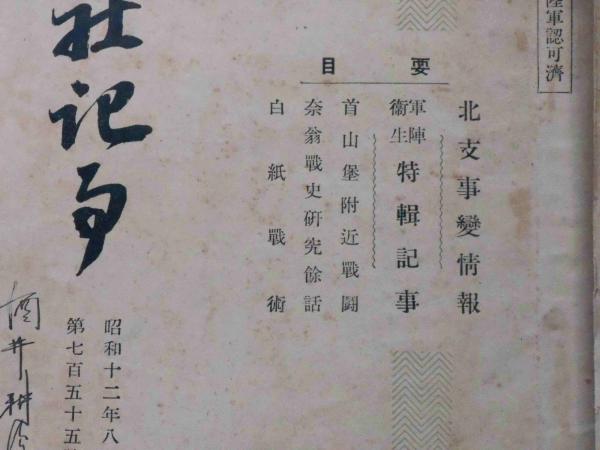 陸軍認可濟
要目
北支事變情報
軍陣衞生 特輯記事
首山堡附近戰鬪
奈翁戰史硏究餘話
白紙戰術
社記事
昭和十二年八
第七百五十五
酒井